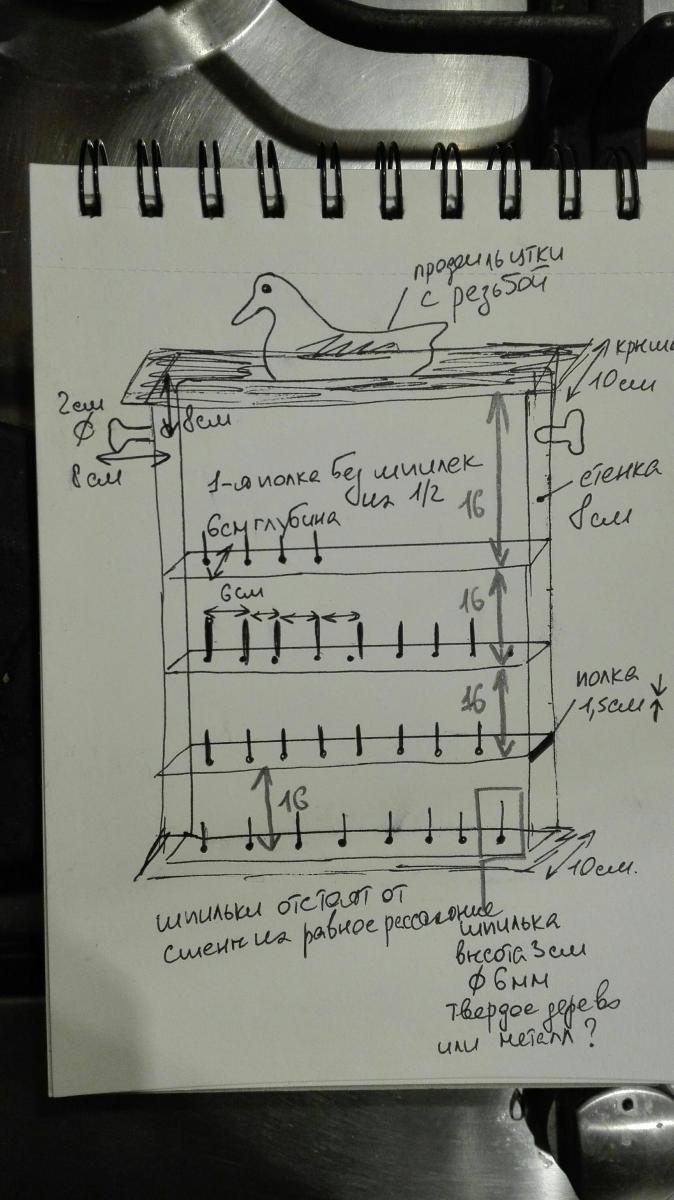 профиль утки
с резьбой
крыша
10см
2см
∅
8см
8см
1-я полка без шпилек
на 1/2
6см глубина
16
стенка
8см
6см
16
полка
1,5см
16
16
10см.
шпильки отстоят от
стенки на равное расстояние
шпилька
высота 3см
∅ 6мм
твердое дерево
или металл?